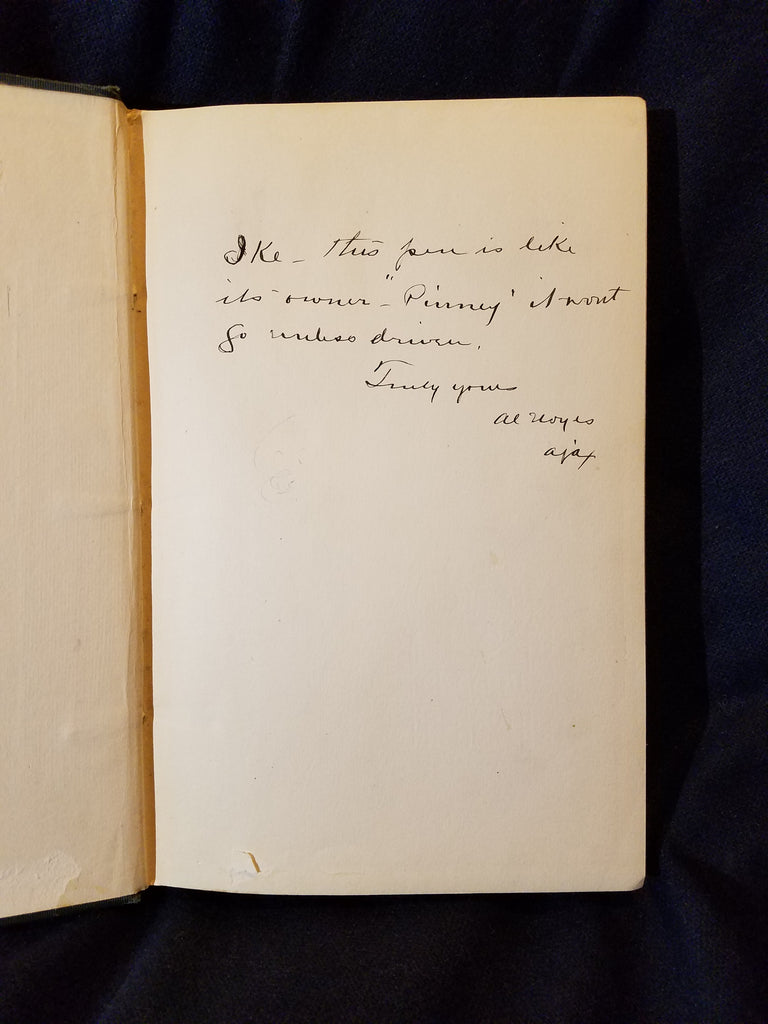 Ike – This pen is like
its owner – "Pinney' it wont
go unless driven.
Truly yours
Al Noyes
ajax